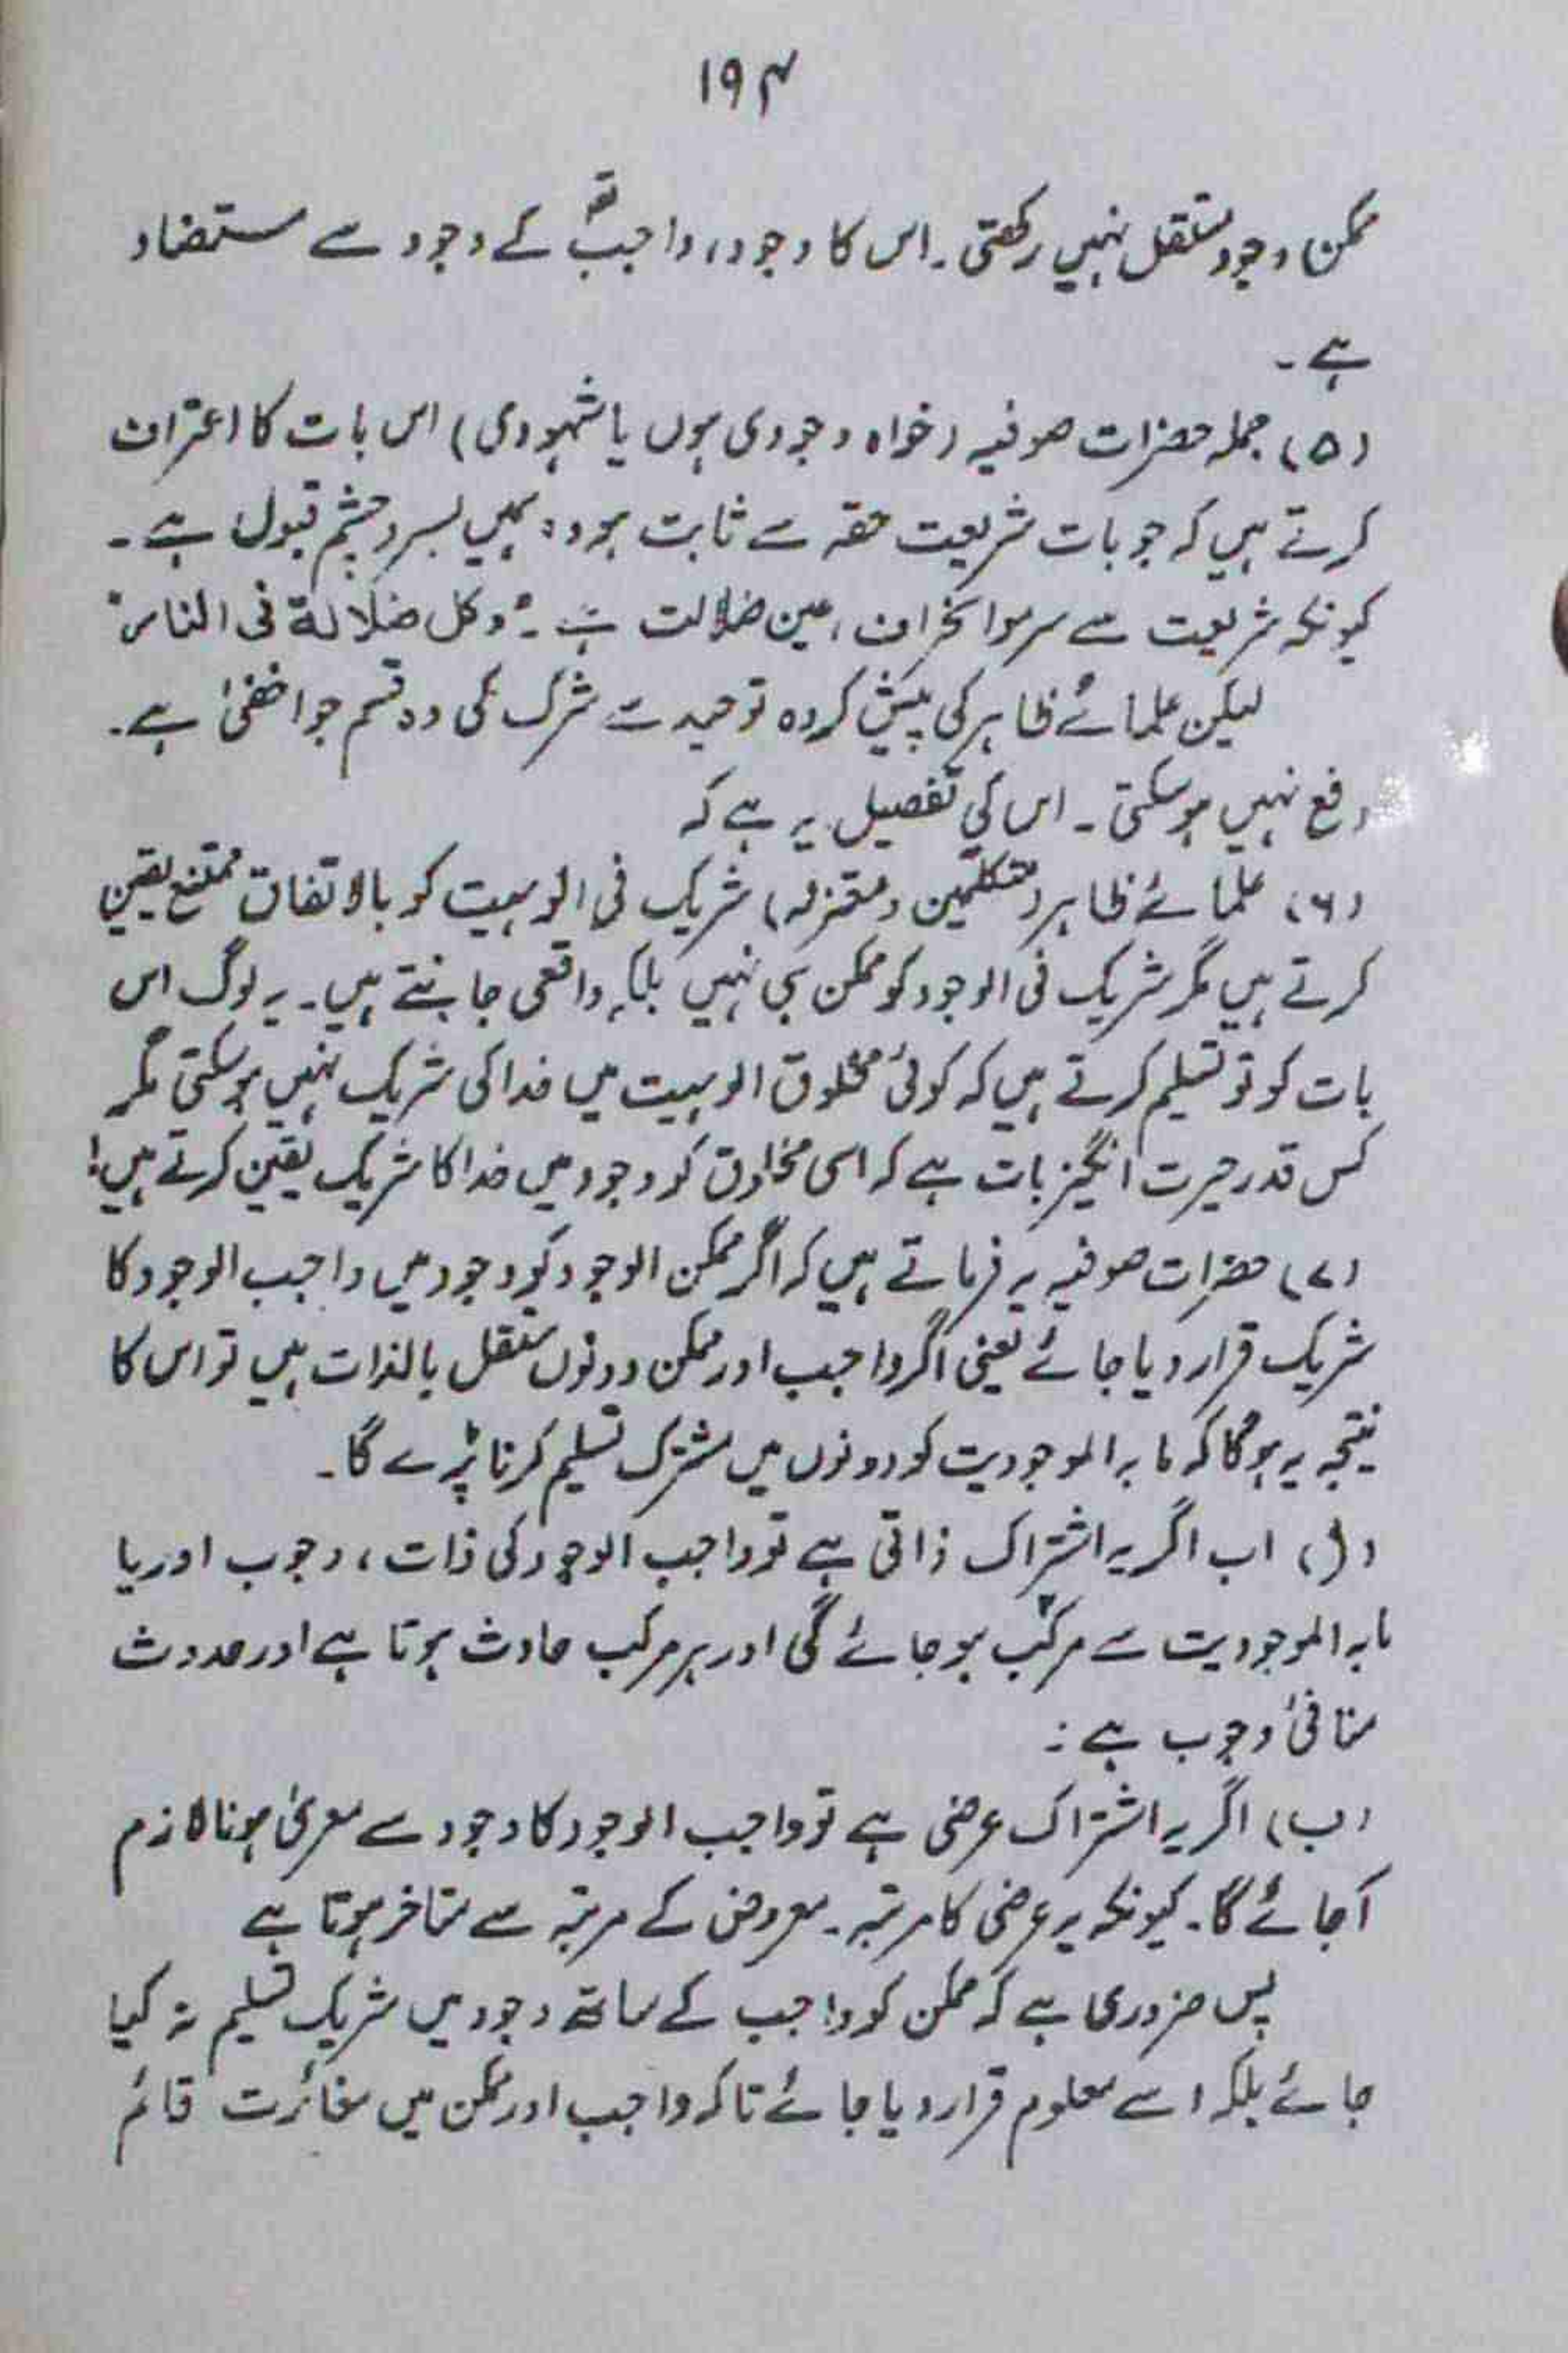 ۱۹۴
ممکن وجود مستقل نہیں رکھتی۔ اس کا وجود، واجب تعؔ کے وجود سے مستفاد
ہے۔
(۵) جملہ حضرات صوفیہ (خواہ وجودی ہوں یا شہودی) اس بات کا اعتراف
کرتے ہیں کہ جو بات شریعت حقہ سے ثابت ہو وہ ہمیں بسر و چشم قبول ہے۔
کیونکہ شریعت سے سرمو انحراف، عین ضلالت ہے۔ "وکل ضلالة فی النار"
لیکن علمائے ظاہر کی پیش کردہ توحید سے شرک کی وہ قسم جو اخفیٰ ہے۔
رفع نہیں ہوسکتی۔ اس کی تفصیل یہ ہے کہ
(۶) علمائے ظاہر (متکلمین و معتزلہ) شریک فی الوہیت کو بالاتفاق ممتنع یقین
کرتے ہیں مگر شریک فی الوجود کو ممکن ہی نہیں بلکہ واقعی جانتے ہیں۔ یہ لوگ اس
بات کو تو تسلیم کرتے ہیں کہ کوئی مخلوق الوہیت میں خدا کی شریک نہیں ہوسکتی مگر
کس قدر حیرت انگیز بات ہے کہ اسی مخلوق کو وجود میں خدا کا شریک یقین کرتے ہیں!
(۷) حضرات صوفیہ یہ فرماتے ہیں کہ اگر ممکن الوجود کو وجود میں واجب الوجود کا
شریک قرار دیا جائے یعنی اگر واجب اور ممکن دونوں مستقل بالذات ہیں تو اس کا
نتیجہ یہ ہوگا کہ مابہ الموجودیت کو دونوں میں مشترک تسلیم کرنا پڑے گا۔
(ا) اب اگر یہ اشتراک ذاتی ہے تو واجب الوجود کی ذات، وجوب اور یا
مابہ الموجودیت سے مرکب ہو جائے گی اور ہر مرکب حادث ہوتا ہے اور حدوث
منافیٔ وجوب ہے:
(ب) اگر یہ اشتراک عرضی ہے تو واجب الوجود کا وجود سے معریٰ ہونا لازم
آجائے گا۔ کیونکہ یہ عرضی کا مرتبہ۔ معروض کے مرتبہ سے متاخر ہوتا ہے
پس ضروری ہے کہ ممکن کو واجب کے ساتھ وجود میں شریک تسلیم نہ کیا
جائے بلکہ اسے معلوم قرار دیا جائے تاکہ واجب اور ممکن میں مغائرت قائم